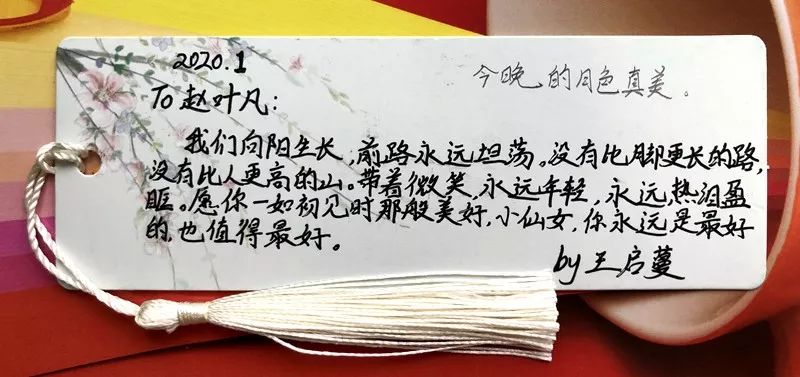 2020.1
今晚的月色真美。
To 赵叶凡：
我们向阳生长，前路永远坦荡。没有比脚更长的路，
没有比人更高的山。带着微笑，永远年轻，永远热泪盈
眶。愿你一如初见时那般美好，小仙女，你永远是最好
的，也值得最好。
by 王启蔓